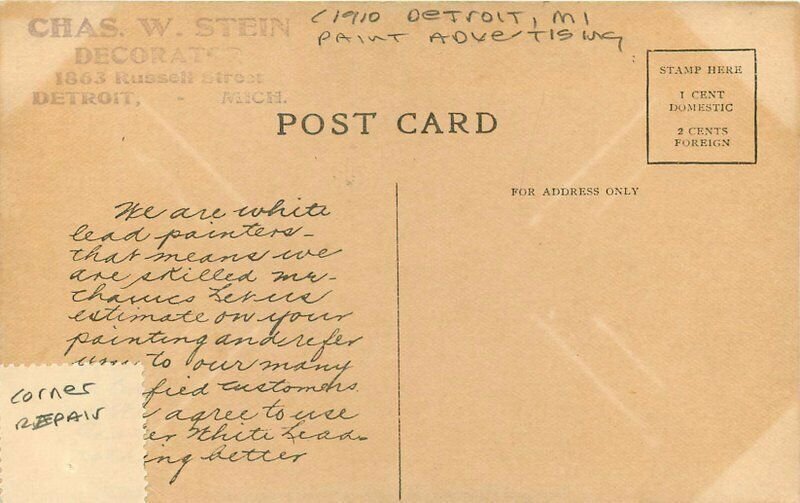 CHAS. W. STEIN
DECORATOR
1863 Russell Street
DETROIT, - MICH.
C1910 DETROIT, MI
PAINT ADVERTISING
STAMP HERE
1 CENT
DOMESTIC
2 CENTS
FOREIGN
POST CARD
FOR ADDRESS ONLY
We are white
lead painters—
that means we
are skilled me-
chanics Let us
estimate on your
painting and refer
you to our many
fied customers.
agree to use
er White Lead—
ing better
corner
REPAIR